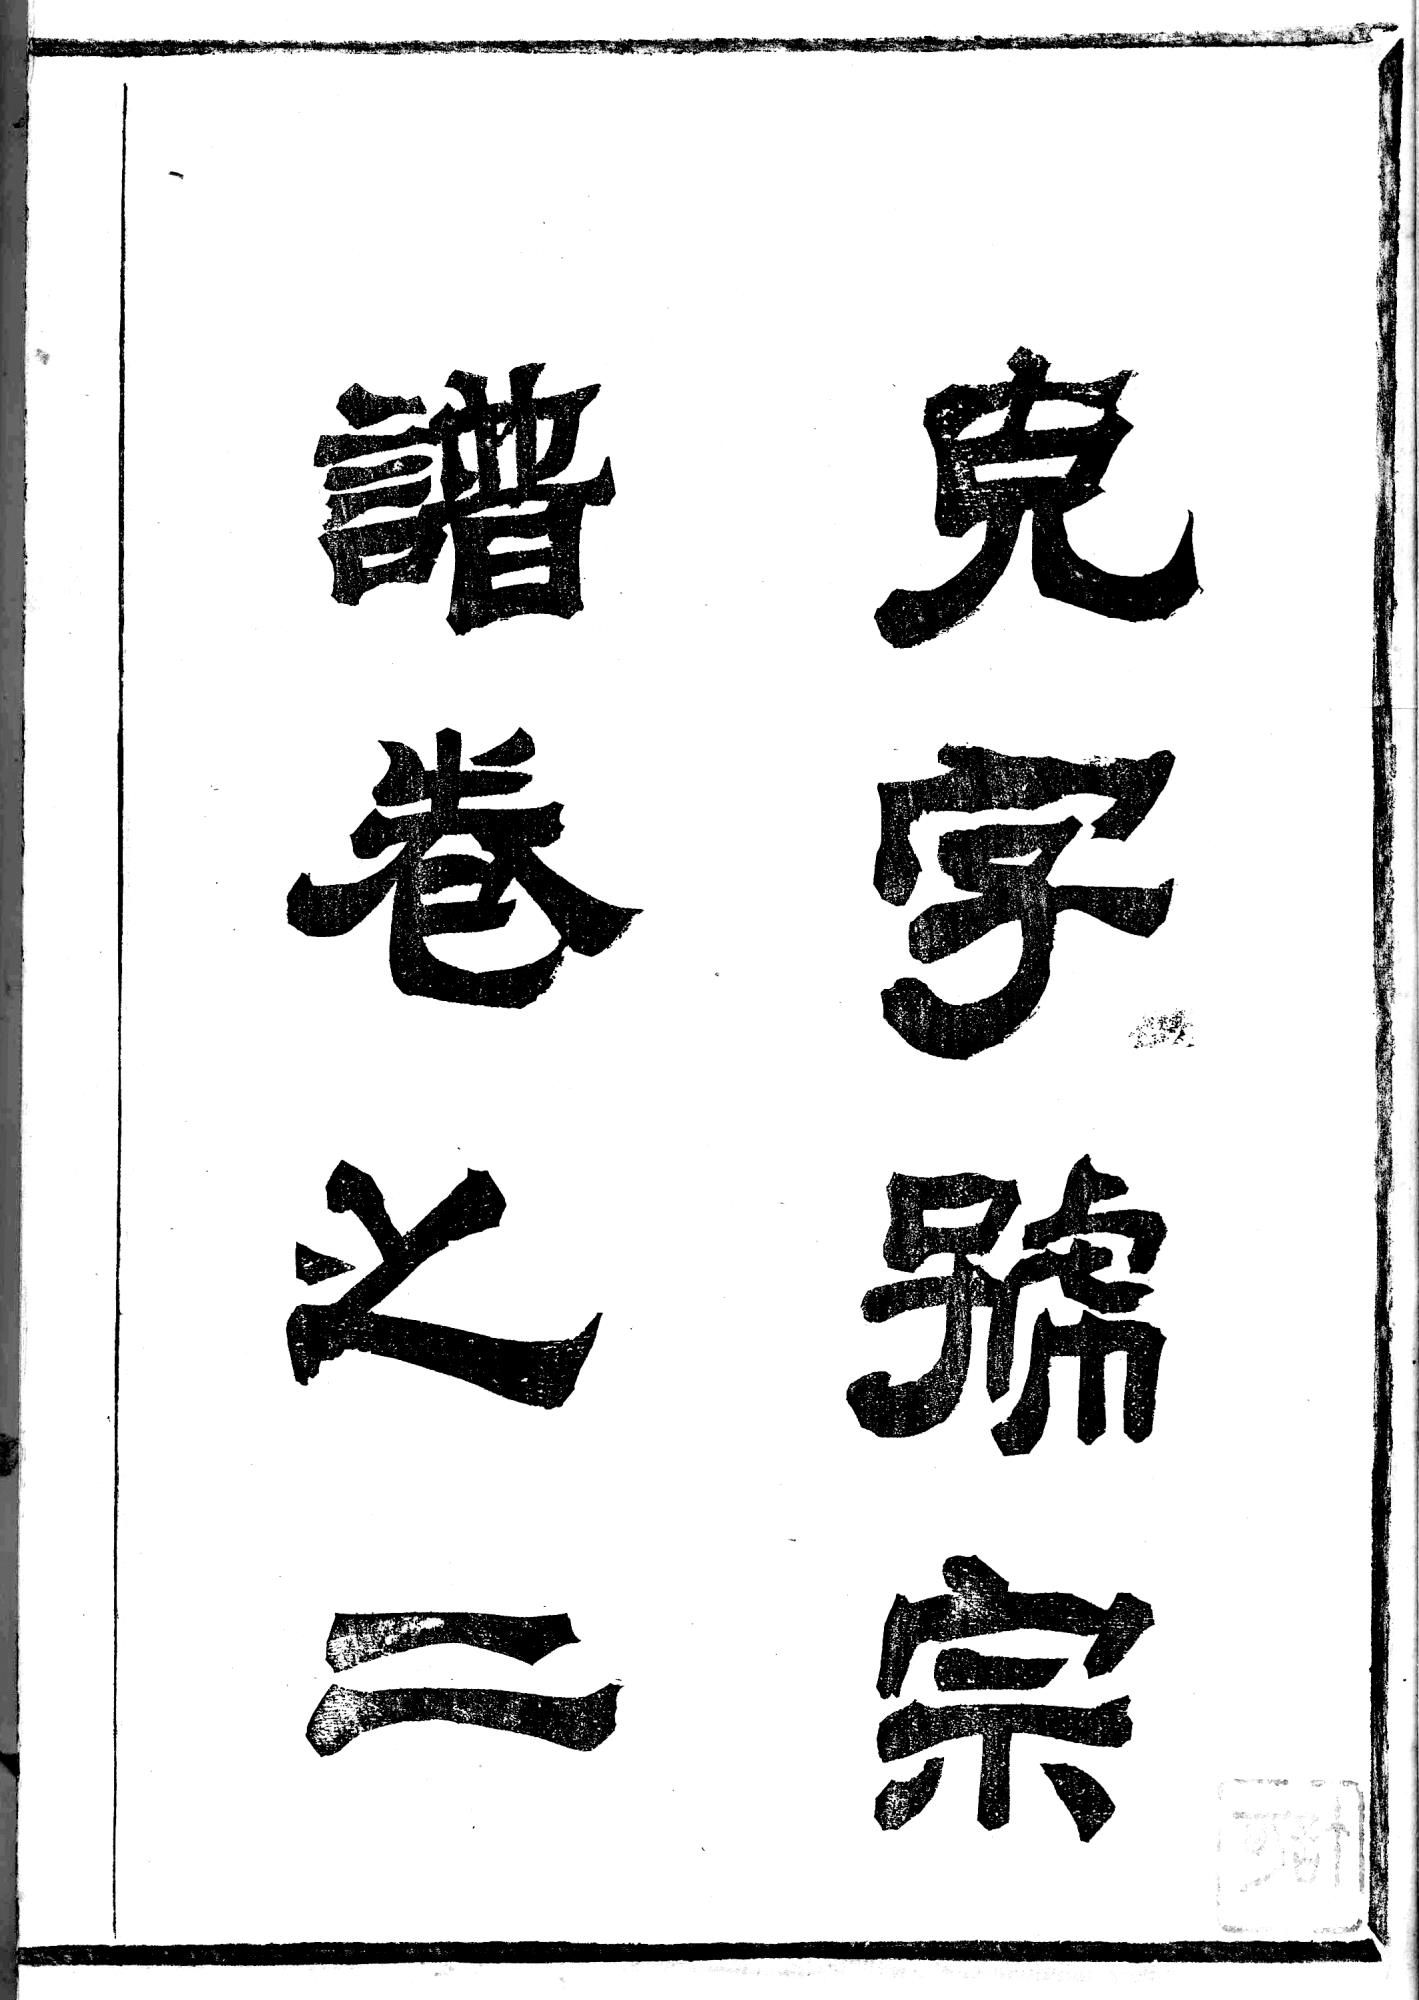 克字號宗
譜卷之二